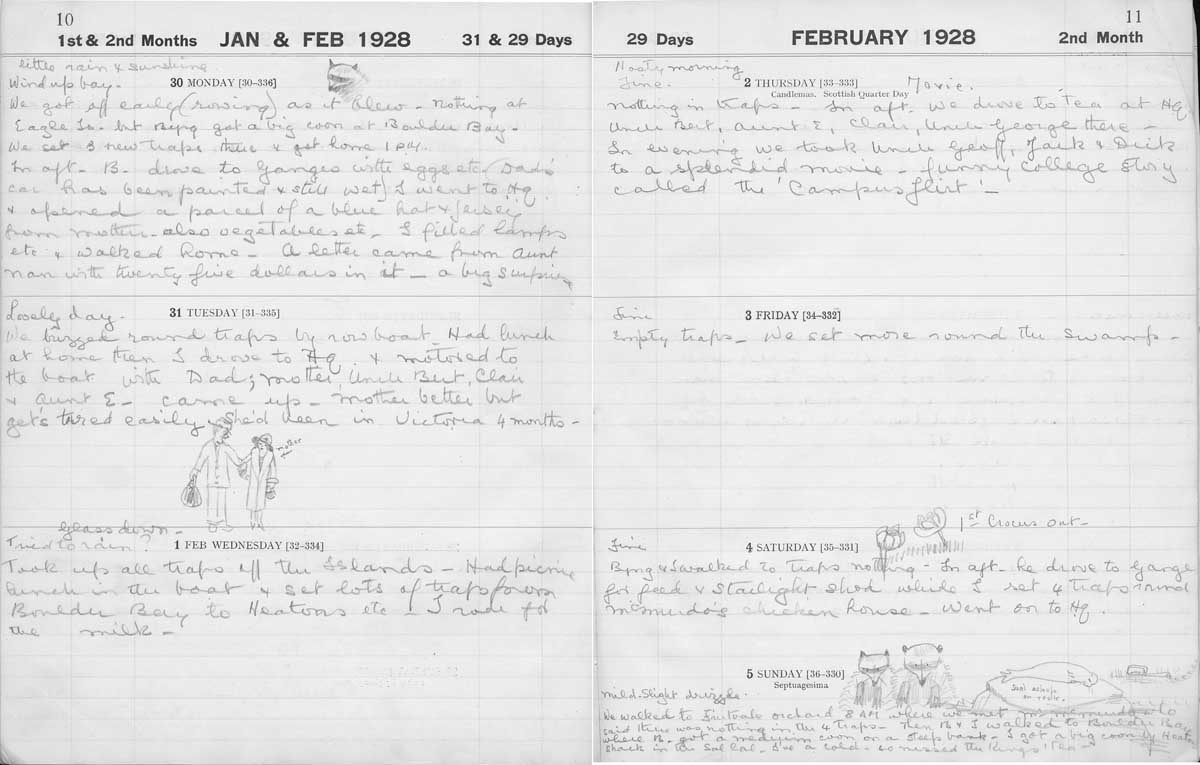 10
1st & 2nd Months JAN & FEB 1928 31 & 29 Days
little rain & sunshine
Wind up bay.
30 MONDAY [30-336]
We got off early (rowing) as it blew - nothing at
Eagle Is. but Byng got a big coon at Boulder Bay -
We set 3 new traps there & got home 1 p.m.
In aft. B. drove to Ganges with eggs etc (Dad's
car has been painted & still wet) I went to Hq
& opened a parcel of a blue hat & jersey
from mother - also vegetables etc - I filled lamps
etc & walked home - A letter came from Aunt
Nan with twenty five dollars in it - a big surprise
Lovely day -
31 TUESDAY [31-335]
We buzzed round traps by rowboat. Had lunch
at home then I drove to Hq & motored to
the boat with Dad; mother, Uncle Bert, Clair
& Aunt E - came up - mother better but
gets tired easily, she'd been in Victoria 4 months -
mother
Glass down -
Tried to rain?
1 FEB WEDNESDAY [32-334]
Took up all traps off the Islands - Had picnic
lunch in the boat & set lots of traps from
Boulder Bay to Heatons etc - I rode for
the milk -
11
29 Days FEBRUARY 1928 2nd Month
morning
Fine.
2 THURSDAY [33-333] Movie.
Candlemas. Scottish Quarter Day
nothing in traps - In aft. we drove to tea at Hq
Uncle Bert, Aunt E, Clair, Uncle George there -
In evening we took Uncle Geoff, Jack & Dick
to a splendid movie - funny college story
called the 'Campus flirt' -
Fine
3 FRIDAY [34-332]
Empty traps - We set more round the swamp -
1st Crocus out -
Fine
4 SATURDAY [35-331]
Byng & I walked to traps nothing - In aft. he drove to Ganges
for feed & Starlight shod while I set 4 traps round
McMurdo's chicken house - Went on to Hq.
5 SUNDAY [36-330]
Septuagesima
Seal asleep
on rock.
mild. Slight drizzle.
We walked to Fruitvale orchard 8 AM where we met
said there was nothing in the 4 traps - then B & I walked to Boulder Bay
where B. got a medium coon on a steep bank - I got a big coon by Heatons
shack in the Sallal - I've a cold - so missed the Kings' Tea -